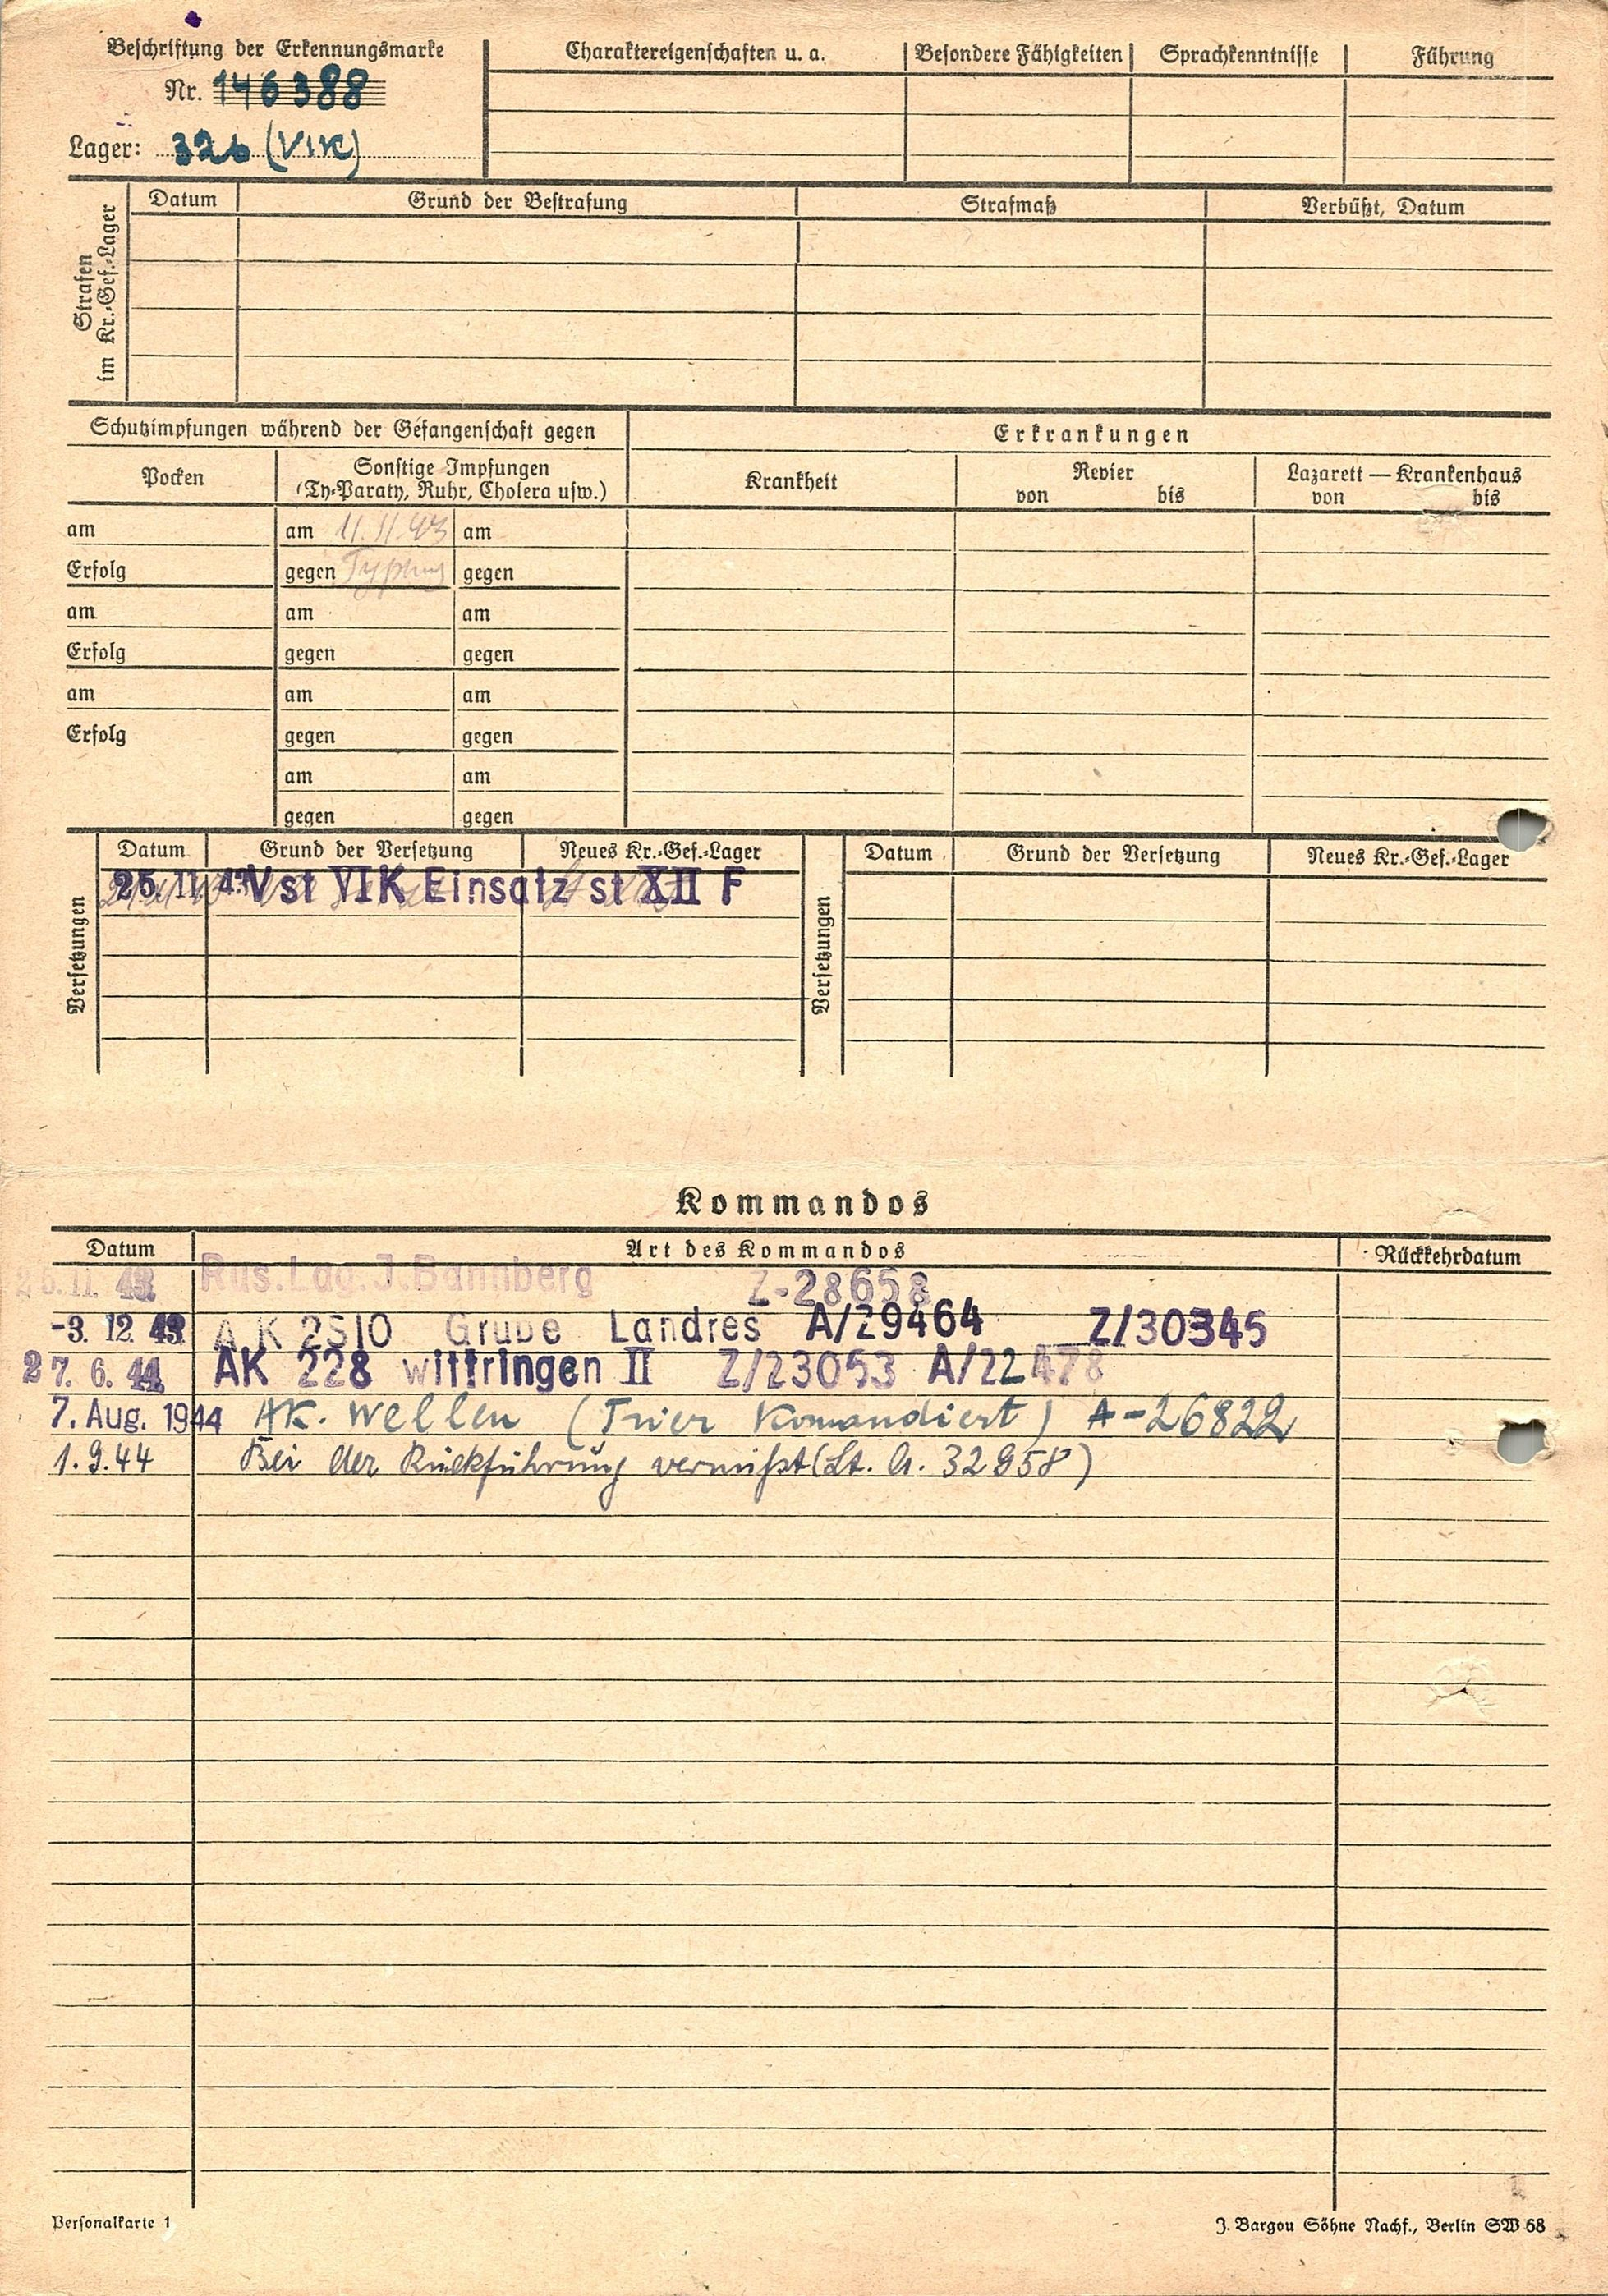 Beschriftung der Erkennungsmarke
Nr. 146388
Lager: 326 (VIK)
Charaktereigenschaften u. a. Besondere Fähigkeiten Sprachkenntnisse Führung
Strafen
im Kr.-Gef.-Lager
Datum Grund der Bestrafung Strafmaß Verbüßt, Datum
Schutzimpfungen während der Gefangenschaft gegen
Erkrankungen
Pocken
Sonstige Impfungen
(Ty-Paraty, Ruhr, Cholera usw.)
Krankheit
Revier
von bis
Lazarett — Krankenhaus
von bis
am am 11.11.43 am
Erfolg gegen Typhus gegen
am am am
Erfolg gegen gegen
am am am
Erfolg gegen gegen
am am
gegen gegen
Versetzungen
Datum Grund der Versetzung Neues Kr.-Gef.-Lager
25. 11. 43 Vst VIK Einsatz st XII F
Versetzungen
Datum Grund der Versetzung Neues Kr.-Gef.-Lager
Kommandos
Datum Art des Kommandos Rückkehrdatum
26. 11. 43 Rus.Lag.J.Bannberg Z-28658
-3. 12. 43 A K 2510 Grube Landres A/29464 Z/30345
27. 6. 44 AK 228 wittringen II Z/23053 A/22478
7. Aug. 1944 AK. Wellen (Trier Komandiert) A-26822
1.9.44 Bei der Rückführung vermißt (Lt. A. 32958)
Personalkarte 1
J. Bargou Söhne Nachf., Berlin SW 68